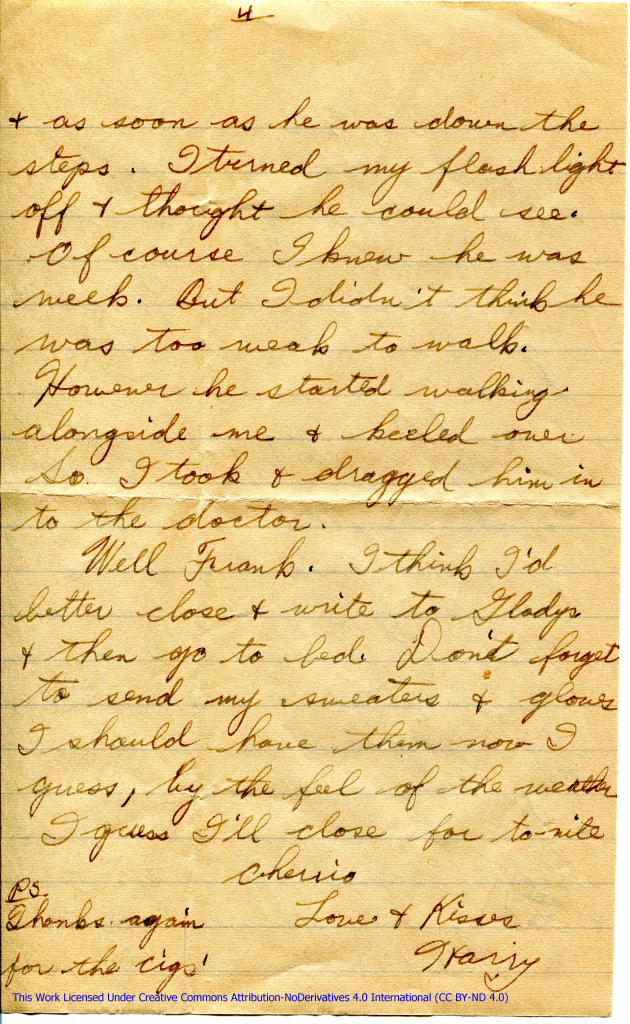 4
& as soon as he was down the
steps. I turned my flash light
off & thought he could see.
Of course I knew he was
week. But I didn't think he
was too weak to walk.
However he started walking
alongside me & keeled over.
So. I took & dragged him in
to the doctor.
Well Frank. I think I'd
better close & write to Gladys
& then go to bed. Don't forget
to send my sweaters & gloves
I should have them now I
guess, by the feel of the weather
I guess I'll close for to-nite
Cherrio
Love & Kisses
Harry
PS.
Thanks again
for the cigs'
This Work Licensed Under Creative Commons Attribution-NoDerivatives 4.0 International (CC BY-ND 4.0)